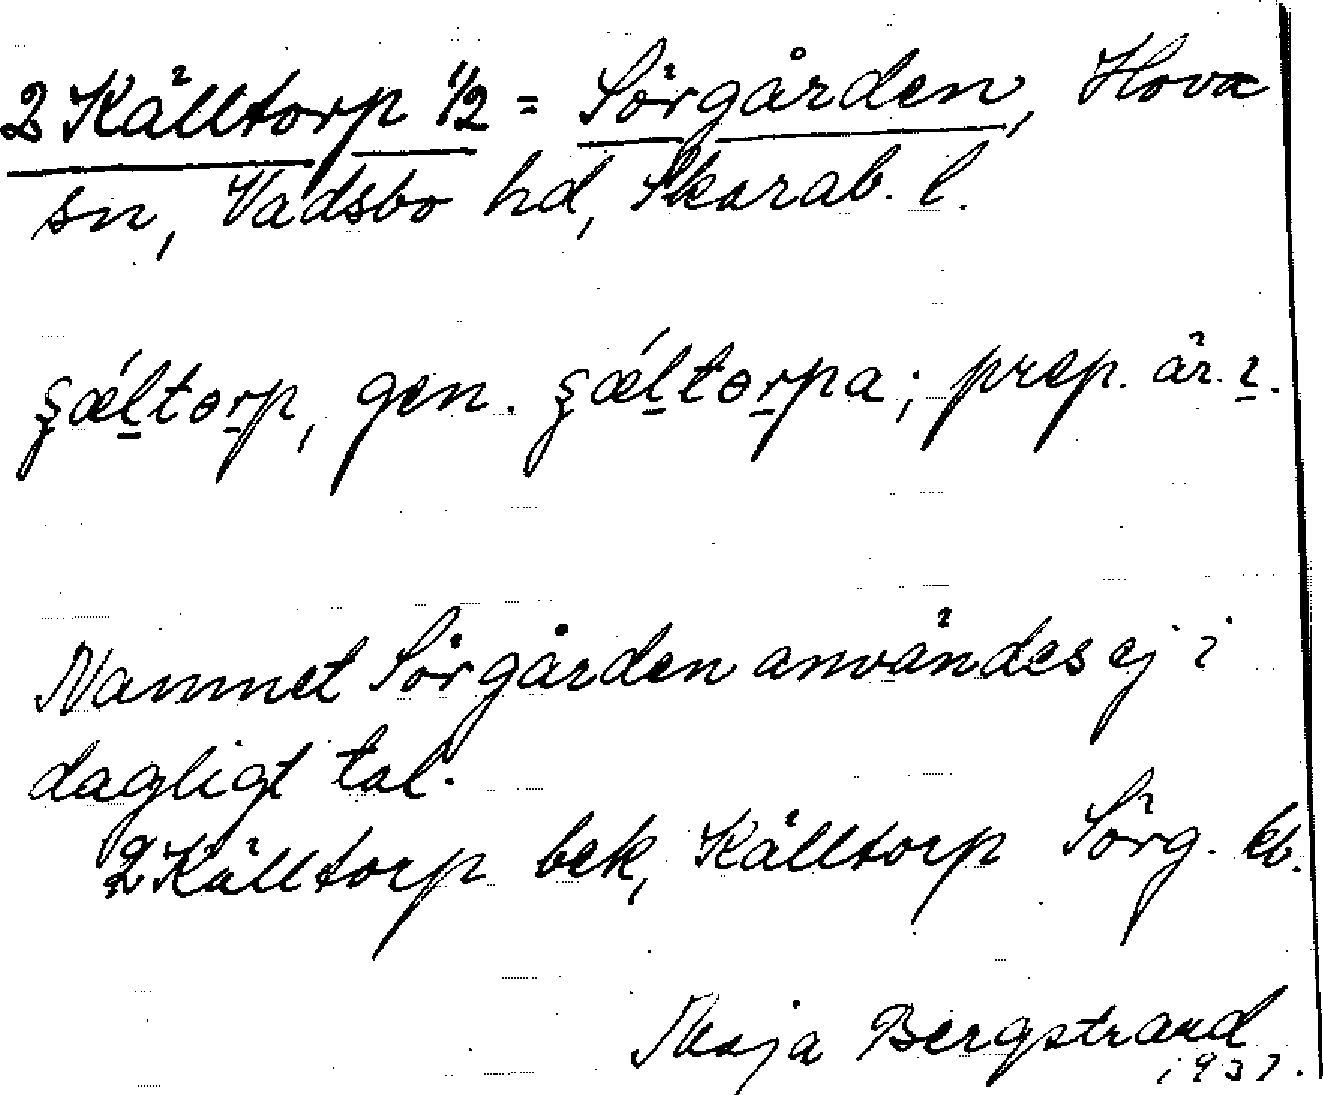 2 Källtorp 1/2 = Sörgården, Hova
sn, Vadsbo hd, Skarab. l.
ʂǽltorp, gen. ʂǽltorpa; prep. är ı.
Namnet Sörgården användes ej i
dagligt tal.
2 Källtorp bek, Källtorp Sörg. kb.
Maja Bergstrand
1937.